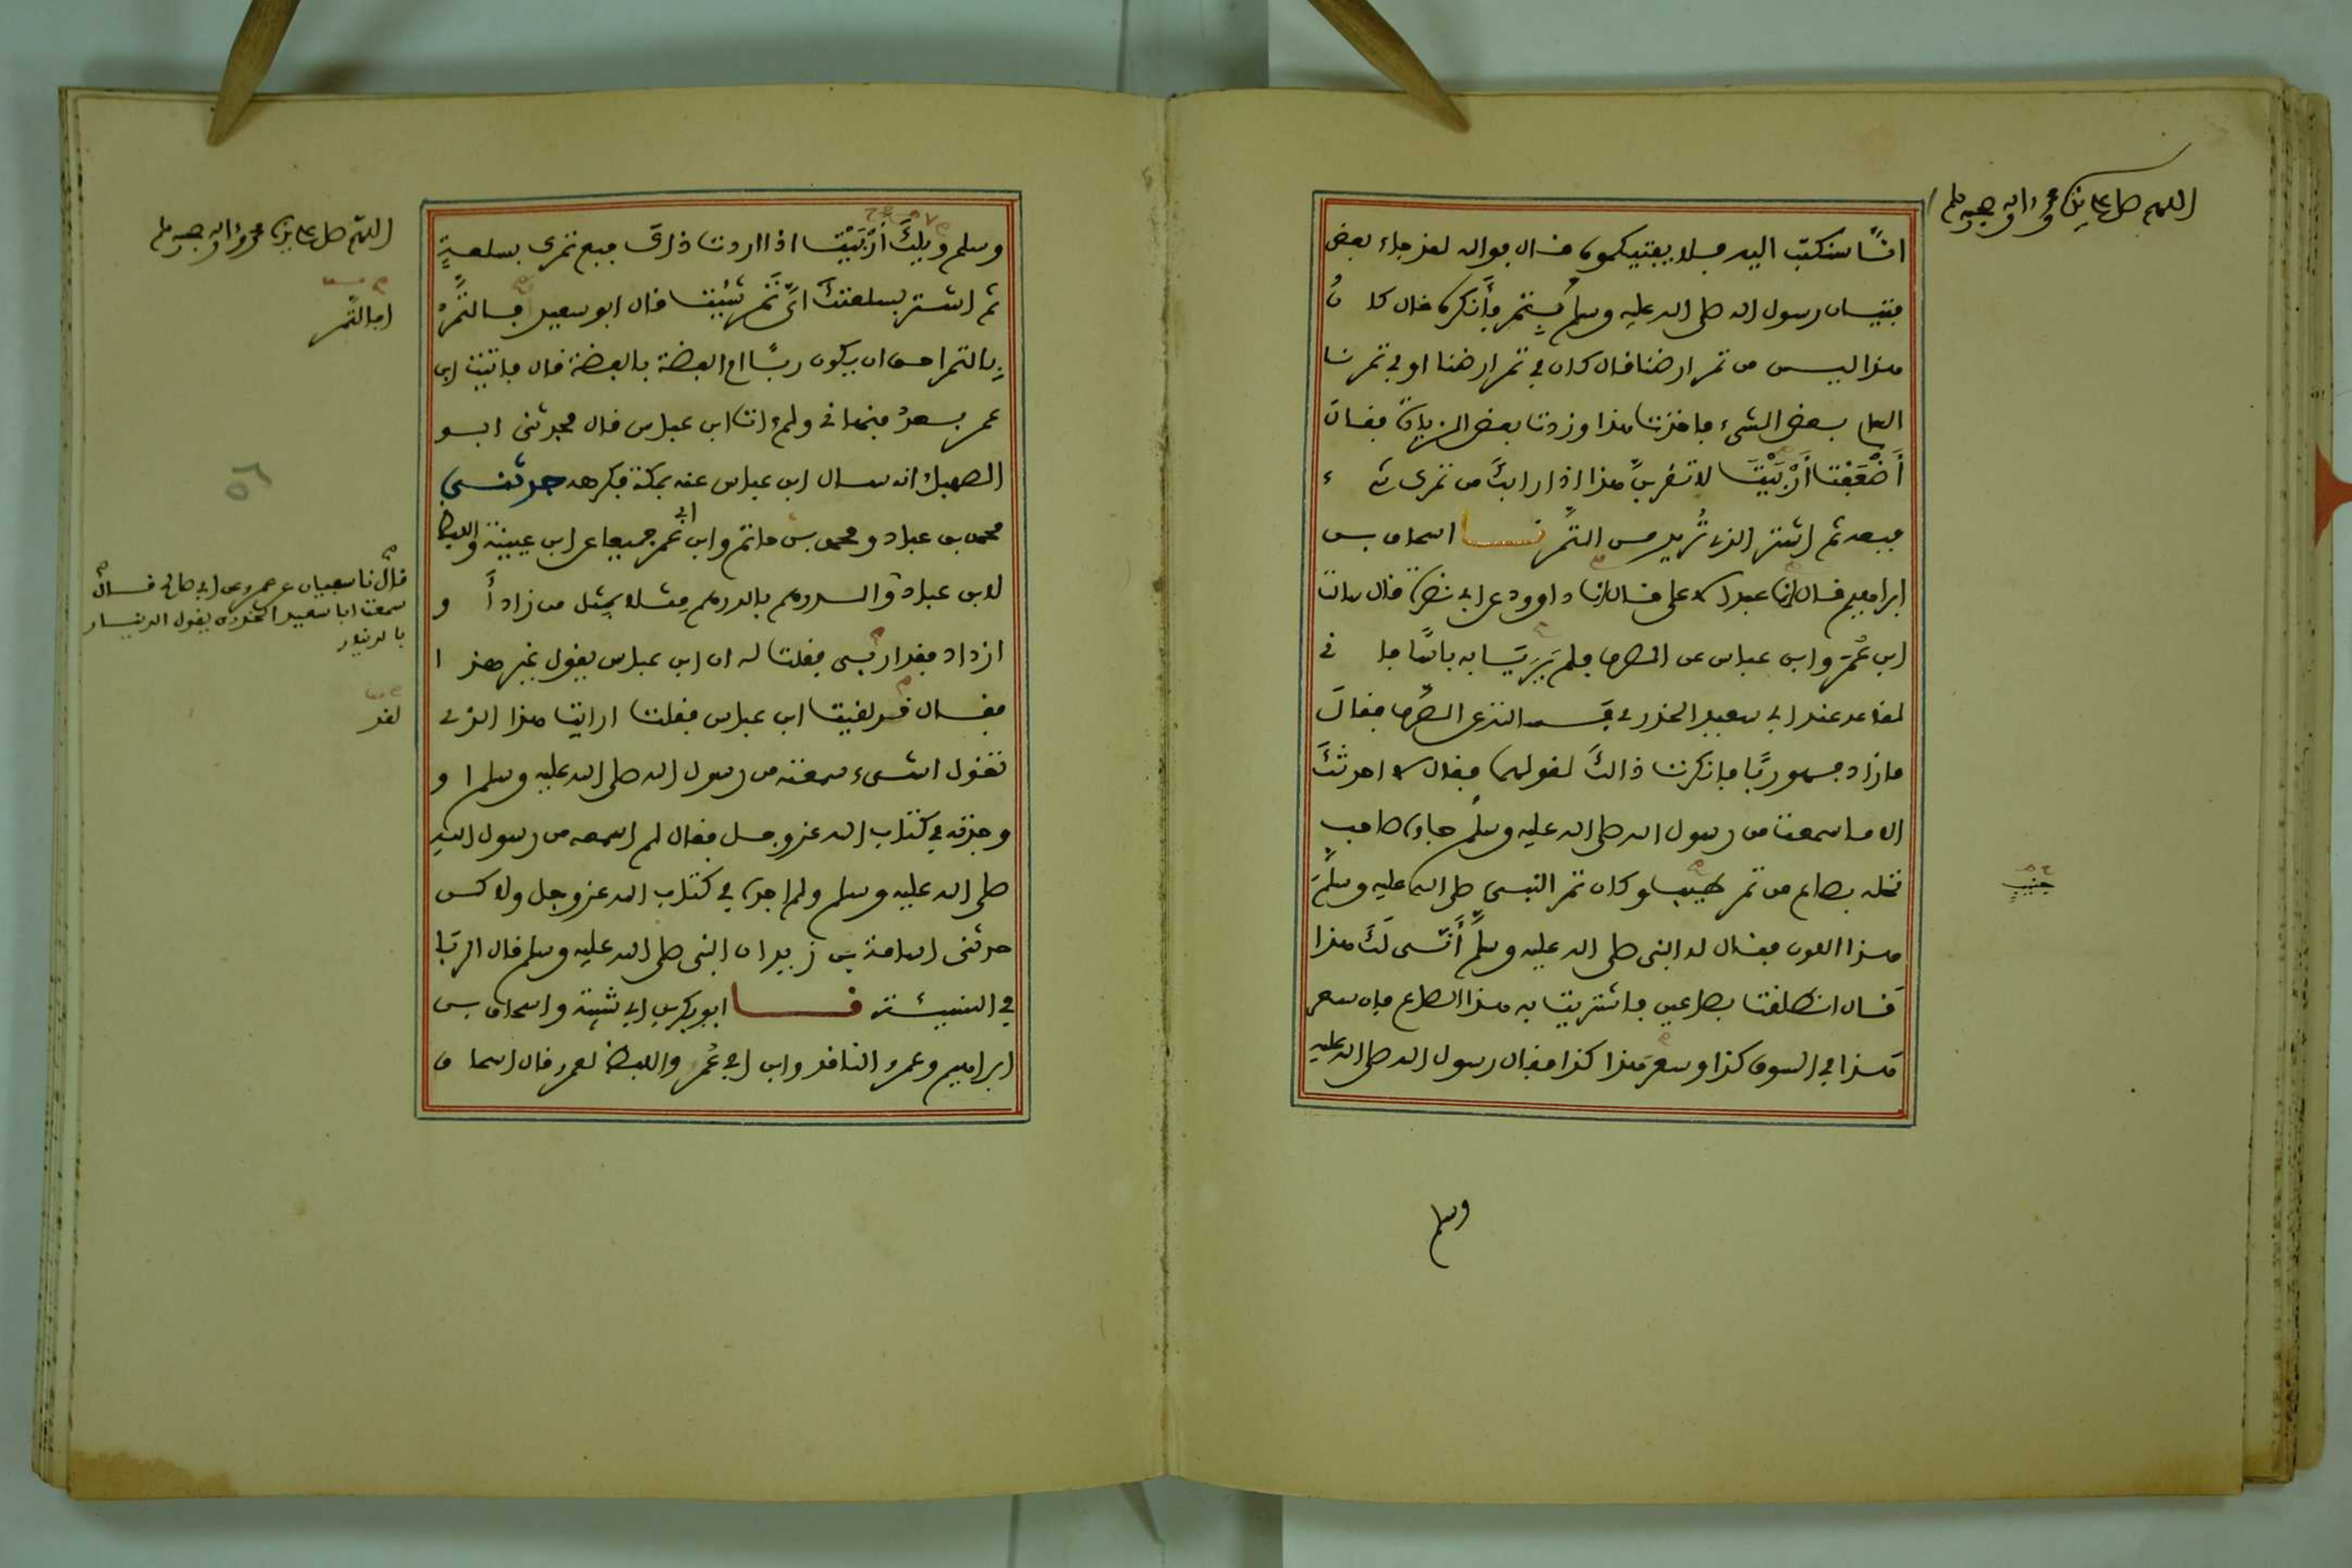 اللهم صل على سيدنا محمد وءاله وصحبه وسلم
انا سنكتب اليه فلا يفتيكموه قال فوالله لقد جاء بعض
فتيان رسول الله صلى الله عليه وسلم بتمر فأنكره فقال كان
هذا ليس من تمر ارضنا قال كان في تمر ارضنا او في تمرنا
العام بعض الشيء فاخذت هذا وزدت بعض الزيادة فقال
أَضْعَفْتَ أَرْبَيْتَ لا تقربن هذا اذا رابك من تمرك شيء
فبعه ثم اشتر الذي تُريد من التمر نا اسحاق بن
ابراهيم قال انا عبد الاعلى قال انا داوود عن ابي نضرة قال سالت
ابن عُمَر وابن عباس عن الصرف فلم يَرَيَا به بأسا فاني
لقاعد عند ابي سعيد الخدري فسالته عن الصرف فقال
ما زاد فهو ربًا فانكرت ذالك لقولهما فقال لا احدثك
الا ما سمعت من رسول الله صلى الله عليه وسلم جاءه صاحب
نخله بصاع من تمر طيب وكان تمر النبي صلى الله عليه وسلم
جنيب
هذا اللون فقال له النبي صلى الله عليه وسلم أَنَّى لَكَ هذا
قال انطلقت بصاعين فاشتريت به هذا الصاع فإن سعر
هذا في السوق كذا وسعر هذا كذا فقال رسول الله صلى الله عليه
وسلم
اللهم صل على سيدنا محمد وءاله وصحبه وسلم
وسلم ويلكَ أَرْبَيْتَ اذا اردت ذلك فبع تمرك بسلعةٍ
ثم اشتر بسلعتك ايَّ تَمْر شئت قال ابو سعيد فالتَّمْرُ
اما التمر
بالتمر احق ان يكون ربًا ام الفضة بالفضة قال فاتيت ابن
عمر بعدُ فنهاني ولم ءات ابن عباس قال فحدثني ابو
الصهباء انه سال ابن عباس عنه بمكة فكرهه حدثني
محمد بن عباد ومحمد بن حاتم وابن ابي عمر جميعا عن ابن عيينة واللفظ
قال نا سفيان عن عمرو عن ابي صالح قال
سمعت ابا سعيد الخدري يقول الدينار
بالدينار
لابن عباد والدرهم بالدرهم مِثلا بمثل من زاد أو
ازداد فقد اربى فقلت له ان ابن عباس يقول غير هذا
فقال قد لقيت ابن عباس فقلت ارايت هذا الذي
لقد
تقول اشيء سمعته من رسول الله صلى الله عليه وسلم او
وجدته في كتاب الله عز وجل فقال لم اسمعه من رسول الله
صلى الله عليه وسلم ولم اجده في كتاب الله عز وجل ولاكن
حدثني اسامة بن زيد ان النبي صلى الله عليه وسلم قال الربا
في النسيئة نا ابو بكر بن ابي شيبة واسحاق بن
ابراهيم وعمرو الناقد وابن ابي عُمَر واللفظ لعمرو قال اسحاق